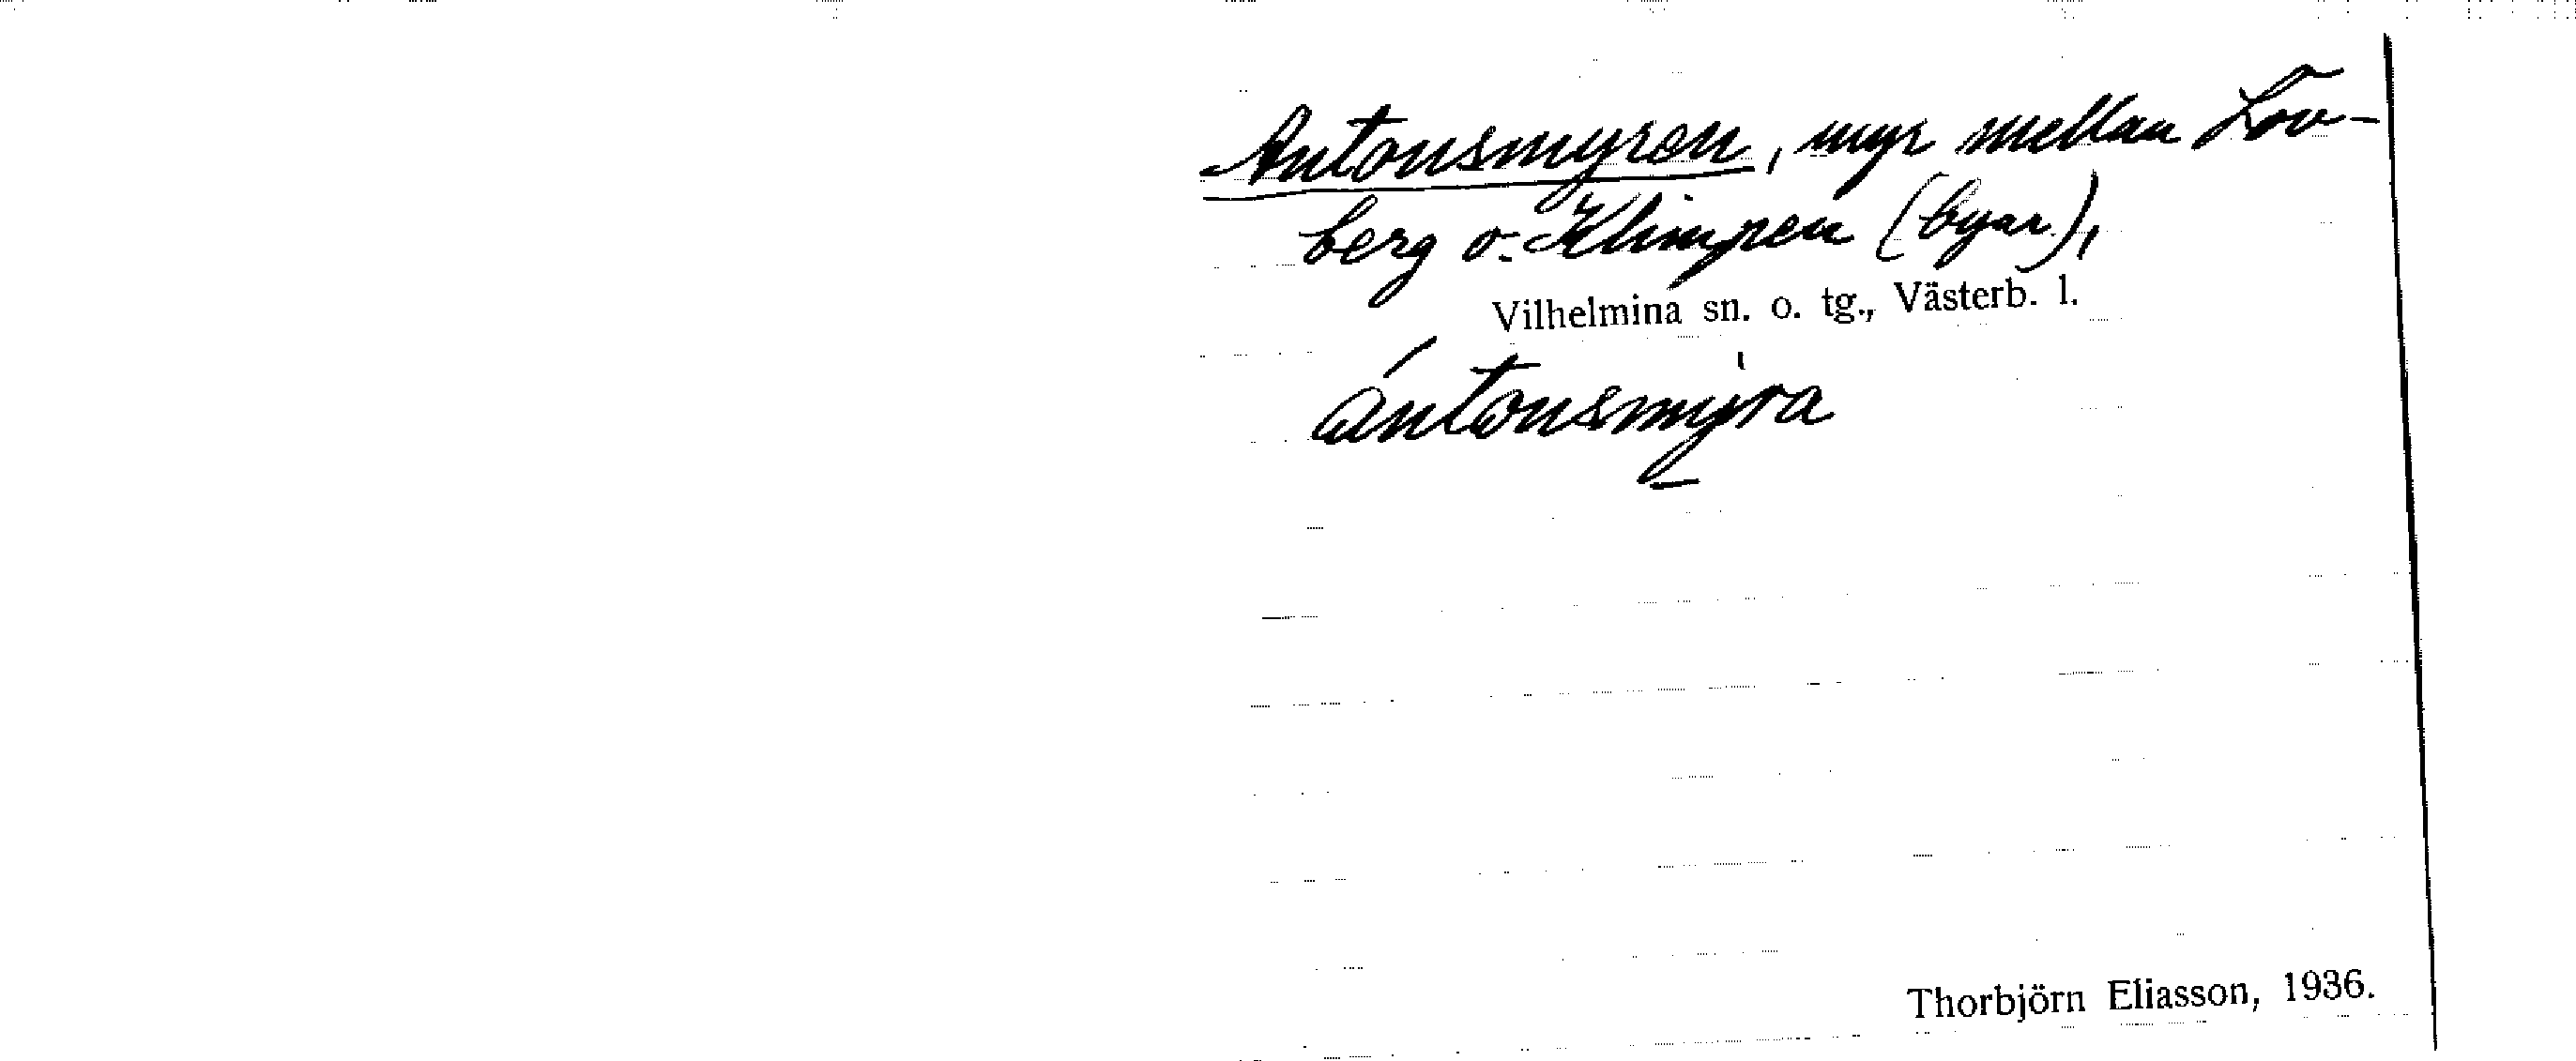 Antonsmyren, myr mellan Löv-
berg o. Klimpen (byar),
Vilhelmina sn. o. tg., Västerb. l.
ántonsmỳ̱ra
Thorbjörn Eliasson, 1936.